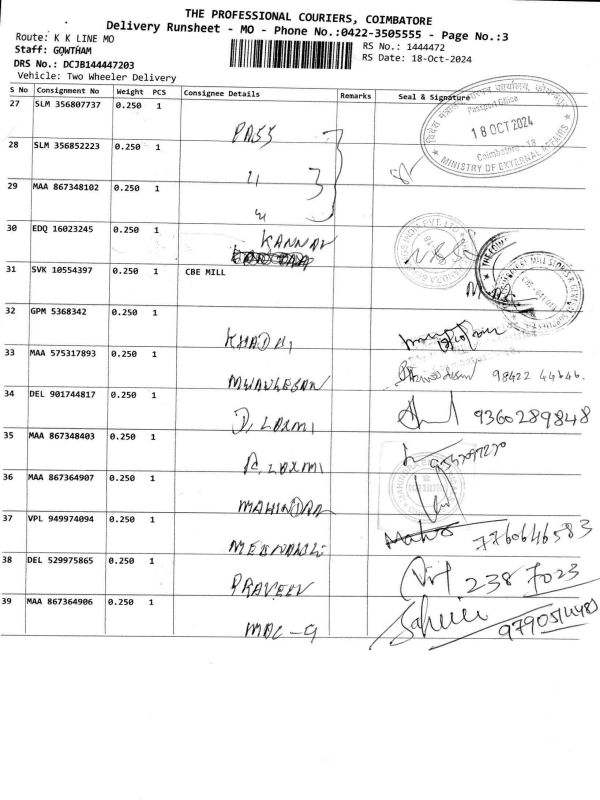 THE PROFESSIONAL COURIERS, COIMBATORE
Delivery Runsheet - MO - Phone No.:0422-3505555 - Page No.:3
Route: K K LINE MO
RS No.: 1444472
Staff: GOWTHAM
RS Date: 18-Oct-2024
DRS No.: DCJB144447203
Vehicle: Two Wheeler Delivery
S No Consignment No Weight PCS Consignee Details Remarks Seal & Signature
27 SLM 356807737 0.250 1 PASS
Passport Office
18 OCT 2024
Coimbatore - 18
MINISTRY OF EXTERNAL AFFAIRS
28 SLM 356852223 0.250 1 "
29 MAA 867348102 0.250 1 "
30 EDQ 16023245 0.250 1 KANNAN
31 SVK 10554397 0.250 1 CBE MILL
32 GPM 5368342 0.250 1
33 MAA 575317893 0.250 1 98422 44646.
34 DEL 901744817 0.250 1 D. LAXMI 9360289848
35 MAA 867348403 0.250 1 LAXMI
36 MAA 867364907 0.250 1
37 VPL 949974094 0.250 1 7760646583
38 DEL 529975865 0.250 1 PRAVEEN 238 7023
39 MAA 867364906 0.250 1